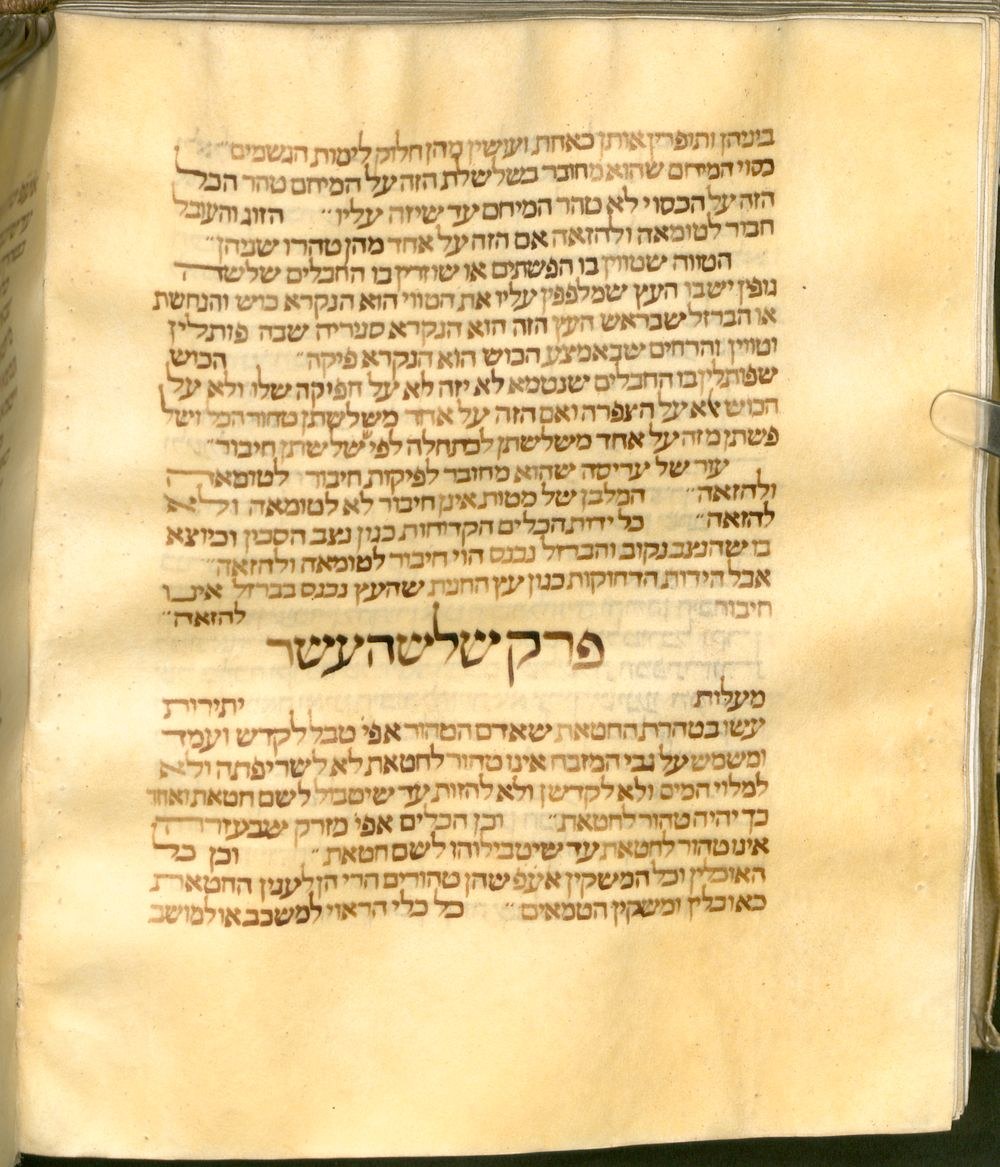 ביניהן ותופרין אותן כאחת ועושין מהן חלוק לימות הגשמים״
כסוי המיחם שהוא מחובר בשלשלת הזה על המיחם טהר הכל
הזה על הכסוי לא טהר המיחם עד שיזה עליו״ הזוג והעובל
חבור לטומאה ולהזאה אם הזה על אחד מהן טהרו שניהן״
הטווה שטווין בו הפשתים או שוזרין בו החבלים שלשה
גופין יש בו העץ שמלפפין עליו את הטווי הוא הנקרא כוש והנחשת
או הברזל שבראש העץ הזה הוא הנקרא סנריה שבה פותלין
וטווין והרחים שבאמצע הכוש הוא הנקרא פיקה״ הכוש
שפותלין בו החבלים שנטמא לא יזה לא על הפיקה שלו ולא על
הכוש אלא על הצפרה ואם הזה על אחד משלשתן טהור הכל ושל
פשתן מזה על אחד משלשתן לכתחלה לפי ששלשתן חיבור״
עור של עריסה שהוא מחובר לפיקות חיבור לטומאה
ולהזאה״ המלבן של מטות אינן חיבור לא לטומאה ולא
להזאה״ כל ידות הכלים הקדוחות כגון נצב הסכין וכיוצא
בו שהנצב נקוב והברזל נכנס הוי חיבור לטומאה ולהזאה״
אבל הידות הדחוקות כגון עץ החנית שהעץ נכנס בברזל אינו
חיבור להזאה״
פרק שלשה עשר
מעלות יתירות
עשו בטהרת החטאת שאדם הטהור אפי׳ טבל לקדש ועמד
ומשמש על גבי המזבח אינו טהור לחטאת לא לשריפתה ולא
למלוי המים ולא לקדשן ולא להזות עד שיטבול לשם חטאת ואחר
כך יהיה טהור לחטאת״ וכן הכלים אפי׳ מזרק שבעזרה
אינו טהור לחטאת עד שיטבילוהו לשם חטאת״ וכן כל
האוכלין וכל המשקין אעפ שהן טהורים הרי הן לענין החטאת
כאוכלין ומשקין הטמאים״ כל כלי הראוי למשכב או למושב